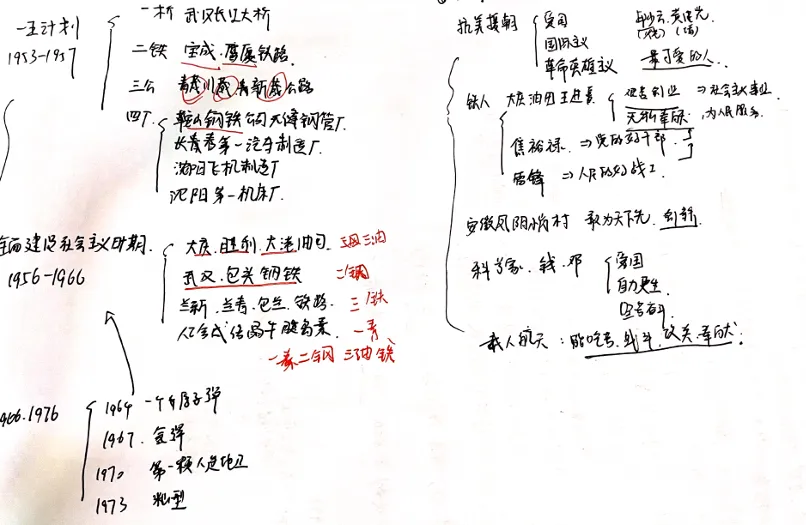 一五计划
1953-1957
一桥 武汉长江大桥
二铁 宝成·鹰厦铁路
三公 青藏川藏青新藏公路
四厂 鞍山钢铁公司无缝钢管厂
长春第一汽车制造厂
沈阳飞机制造厂
沈阳第一机床厂
全面建设社会主义时期
1956-1966
大庆、胜利、大港油田 三油
武汉、包头钢铁 二钢
兰新、兰青、包兰、铁路、三铁
人工合成结晶牛胰岛素、一素
一素二钢 三油铁
1966-1976
1964 一个原子弹
1967. 氢弹
1970 第一颗人造地卫
1973 籼型
抗美援朝
爱国
国际主义
革命英雄主义
最可爱的人
铁人 大庆油田王进喜
艰苦创业 ⇒社会主义事业
无私奉献 为人民服务
焦裕禄 ⇒党的好干部
雷锋 ⇒人民的好战士
安徽凤阳小岗村 敢为天下先、创新
科学家、钱、邓
爱国
自力更生
艰苦奋斗
载人航天：能吃苦、战斗、攻关、奉献